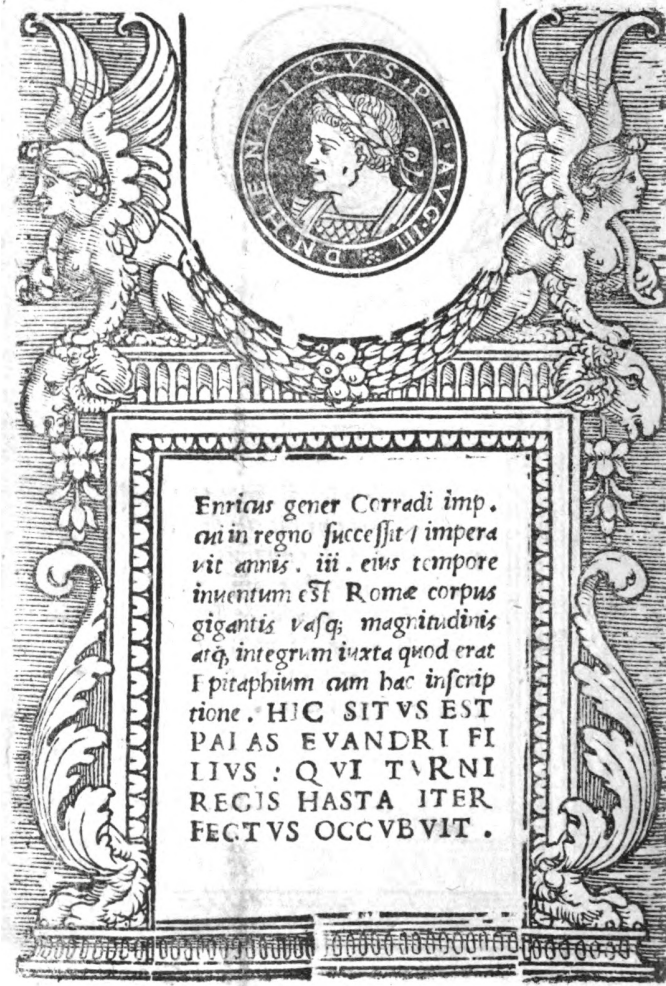 D·N·HENRICVS·P·F·AVG·III
Enricus gener Corradi imp.
cui in regno successit / impera
vit annis. iii. eius tempore
inventum est Romæ corpus
gigantis vasq; magnitudinis
atq; integrum iuxta quod erat
Epitaphium cum hac inscrip
tione. HIC SITVS EST
PALAS EVANDRI FI
LIVS : QVI TVRNI
REGIS HASTA ITER
FECTVS OCCVBVIT.